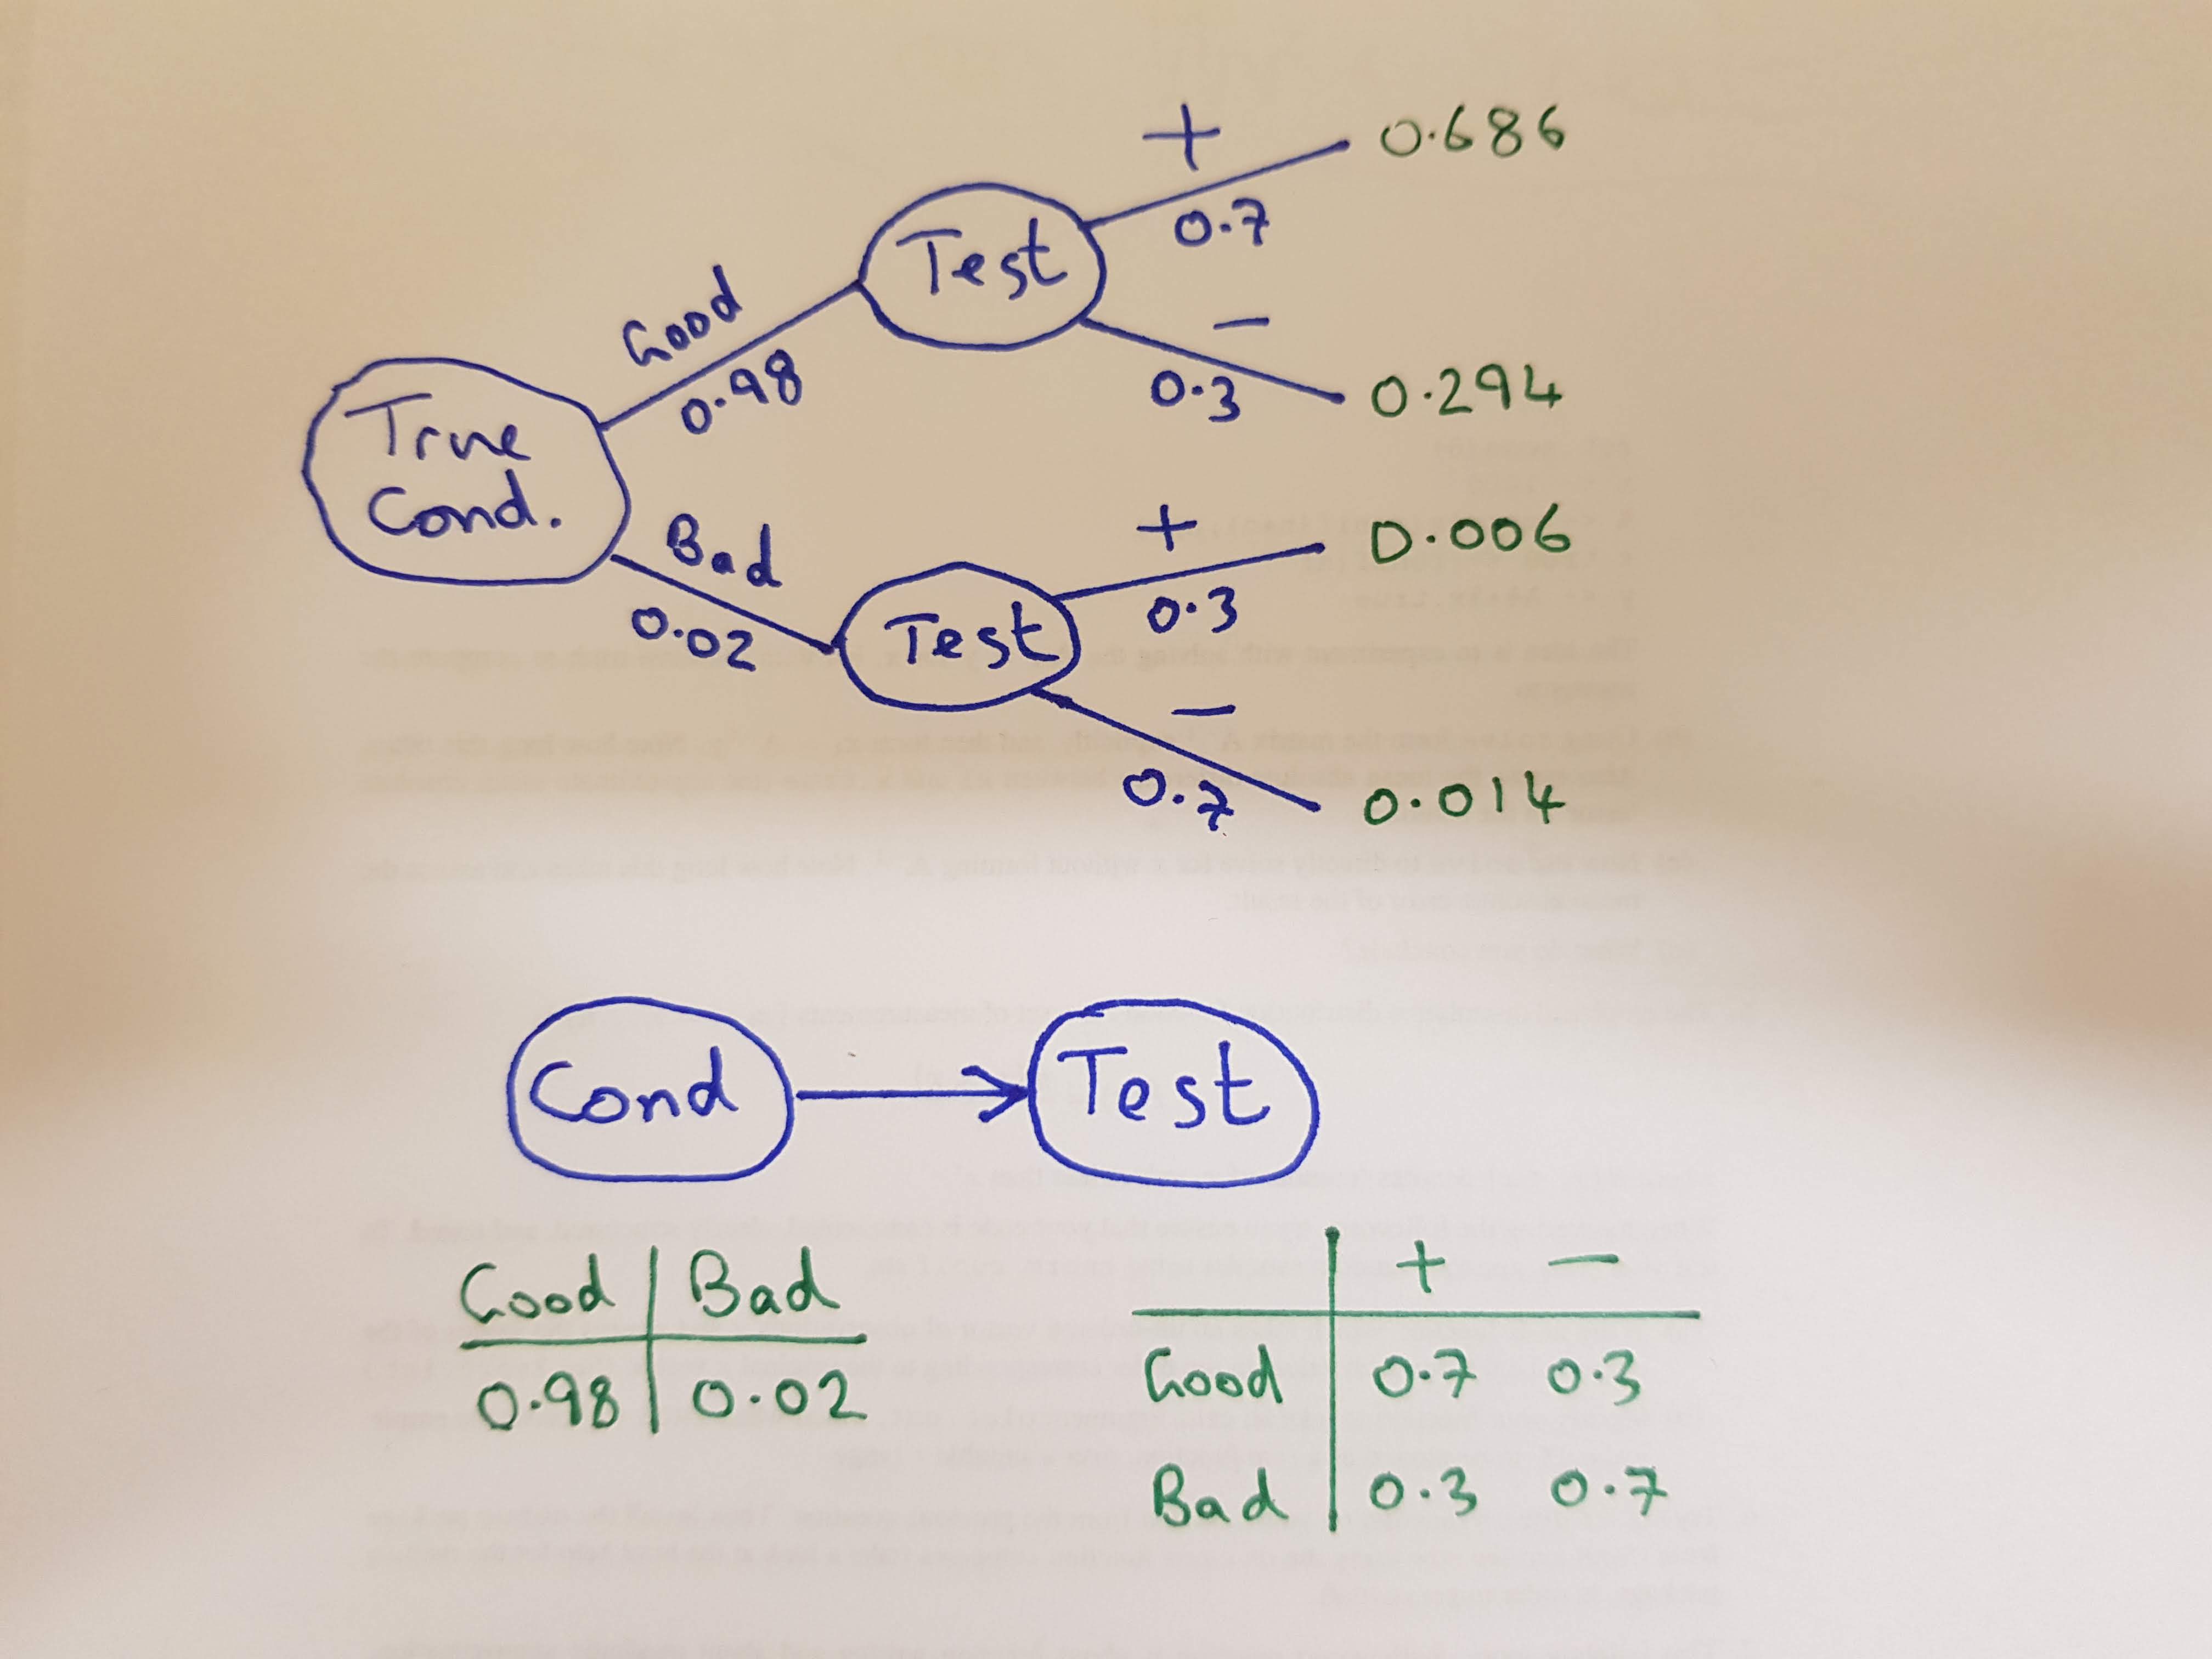 True
Cond.
Good
0.98
Bad
0.02
Test
+
0.7
-
0.3
0.686
0.294
Test
+
0.3
-
0.7
0.006
0.014
Cond
Test
Good Bad
0.98 0.02
+ -
Good 0.7 0.3
Bad 0.3 0.7